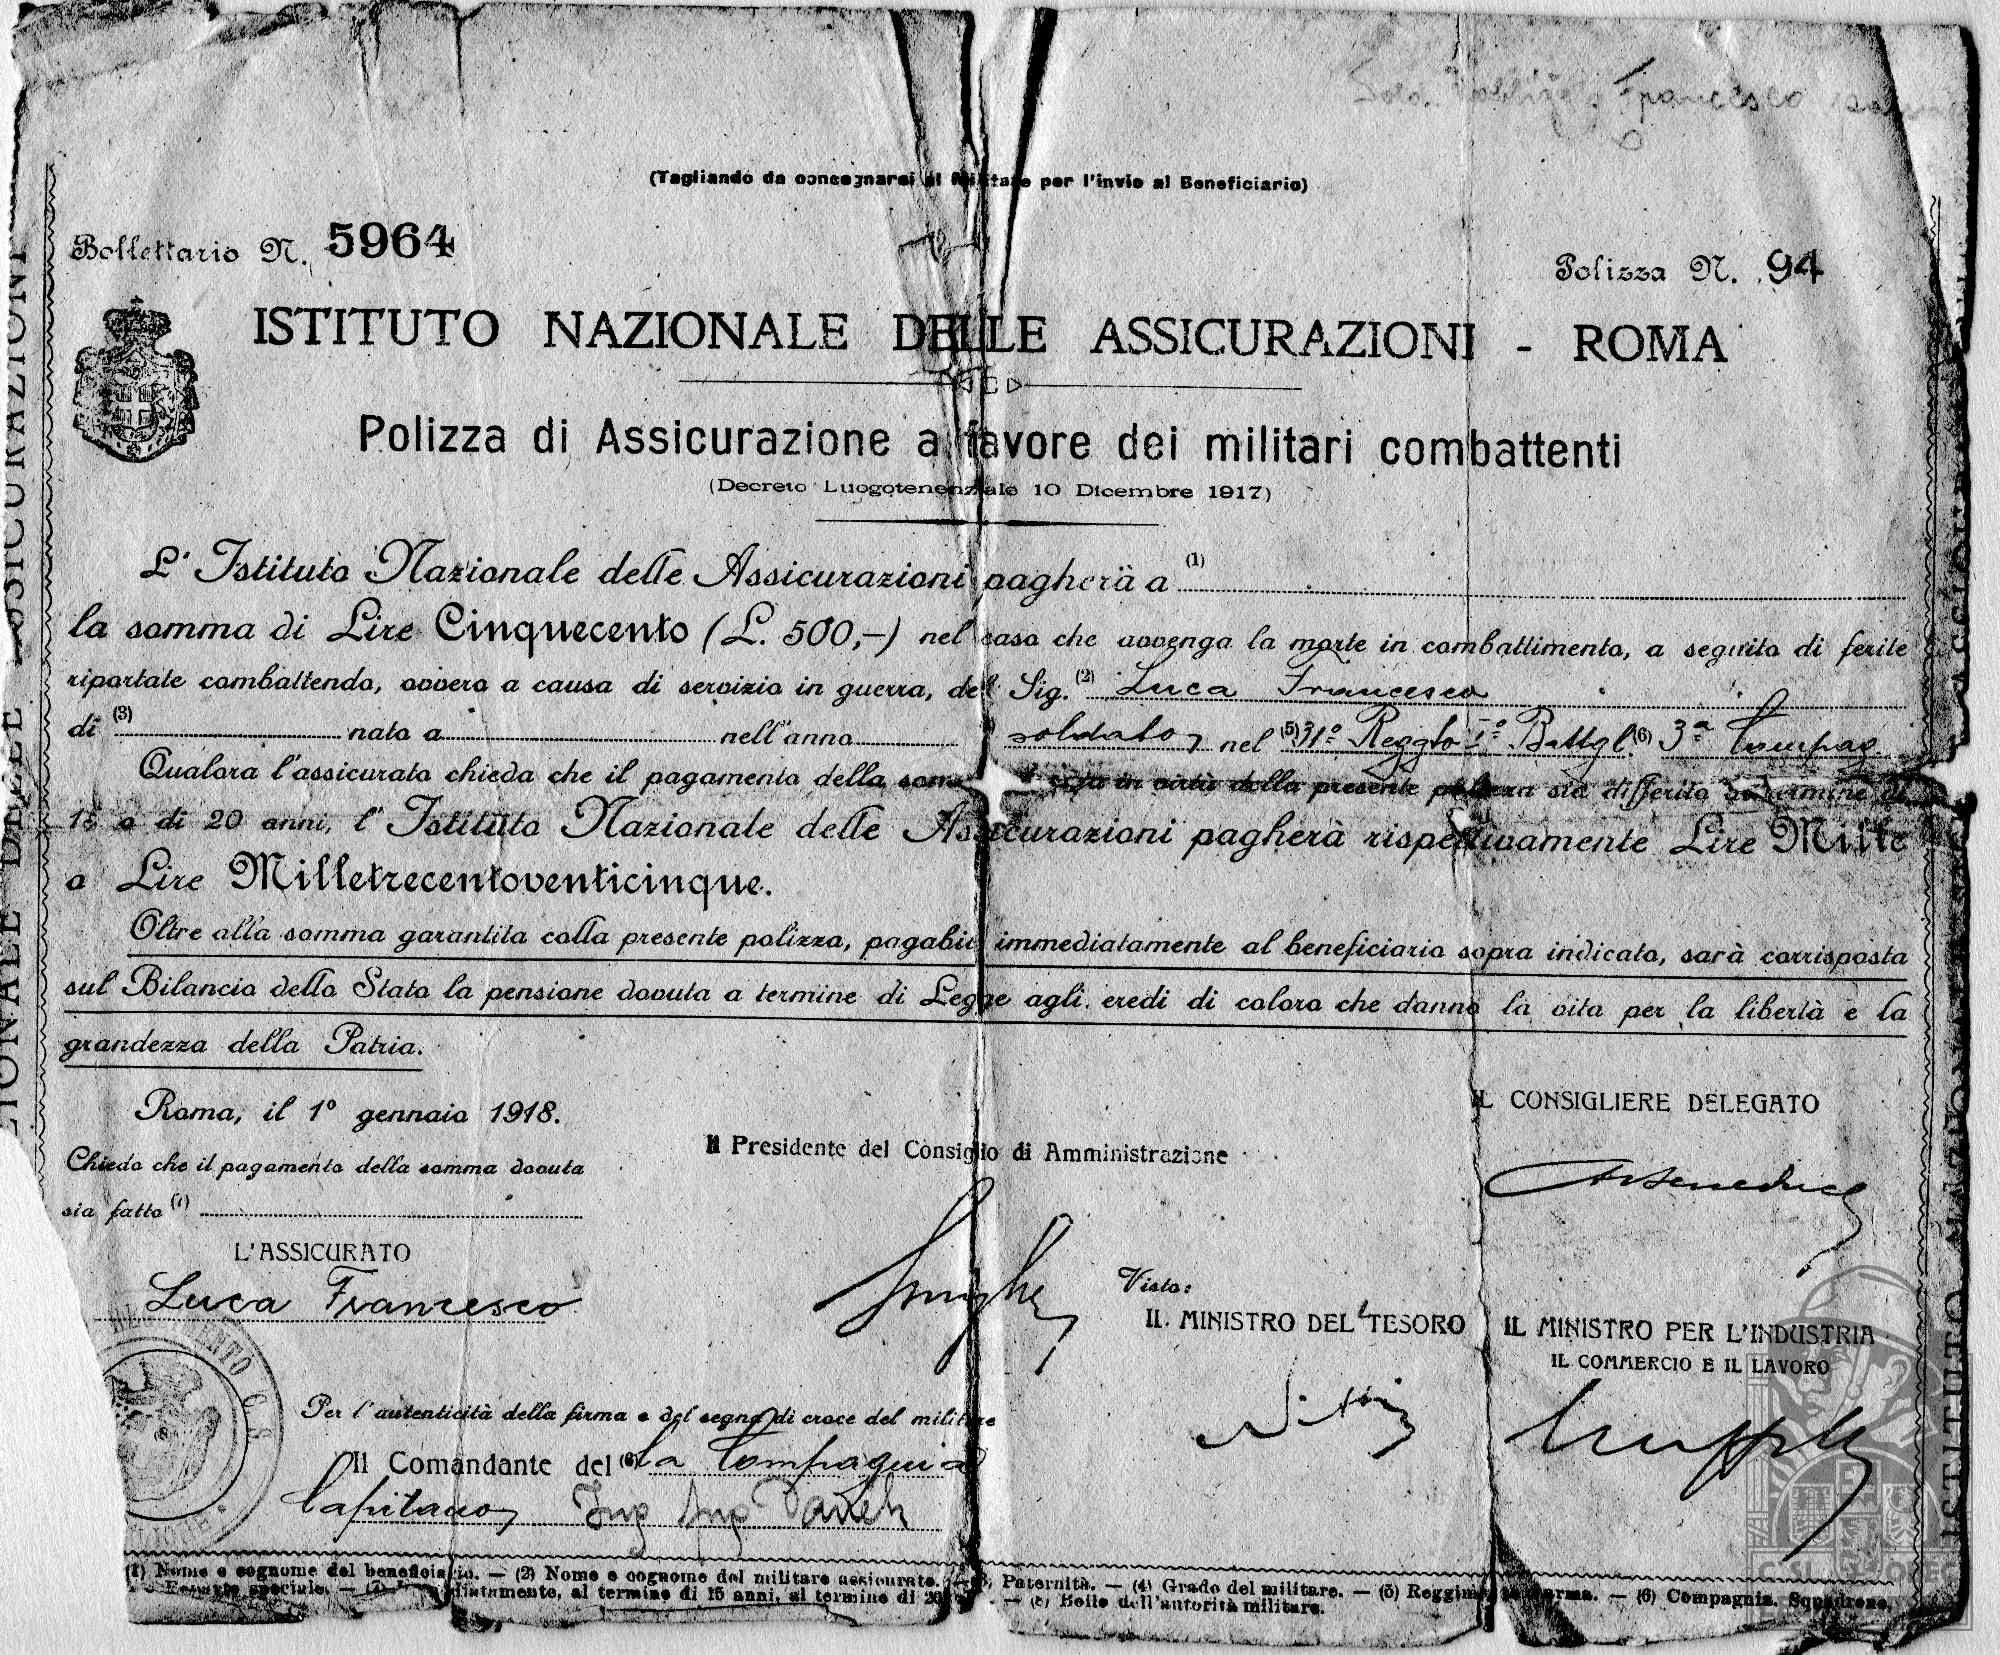 Francesco
(Tagliando da consegnarsi al Militare per l'invio al Beneficiario)
Bollettario N. 5964
Polizza N. 94
ISTITUTO NAZIONALE DELLE ASSICURAZIONI - ROMA
Polizza di Assicurazione a favore dei militari combattenti
(Decreto Luogotenenziale 10 Dicembre 1917)
L'Istituto Nazionale delle Assicurazioni pagherà a (1)
la somma di Lire Cinquecento (L. 500,—) nel caso che avvenga la morte in combattimento, a seguito di ferite
riportate combattendo, ovvero a causa di servizio in guerra, del Sig. (2) Luca Francesco
di (3) nato a nell'anno soldato nel (5) 31º Reggto Iº Battgl. (6) 3ª Compag.
Qualora l'assicurato chieda che il pagamento della in virtù della presente polizza sia differito al termine di
15 o di 20 anni, l'Istituto Nazionale delle Assicurazioni pagherà rispettivamente Lire Mille
o Lire Milletrecentoventicinque.
Oltre alla somma garantita colla presente polizza, pagabile immediatamente al beneficiario sopra indicato, sarà corrisposta
sul Bilancio dello Stato la pensione dovuta a termine di Legge agli eredi di coloro che danno la vita per la libertà e la
grandezza della Patria.
Roma, il 1º gennaio 1918.
IL CONSIGLIERE DELEGATO
Il Presidente del Consiglio di Amministrazione
Chiedo che il pagamento della somma dovuta
sia fatto (7)
L'ASSICURATO
Luca Francesco
Visto:
IL MINISTRO DEL TESORO
IL MINISTRO PER L'INDUSTRIA
IL COMMERCIO E IL LAVORO
Nitti
Per l'autenticità della firma e del segno di croce del militare
Il Comandante del (6) la Compagnia
Capitano
(1) Nome e cognome del beneficiario. — (2) Nome e cognome del militare assicurato. — (3) Paternità. — (4) Grado del militare. — (5) Reggimento Arma. — (6) Compagnia, Squadrone,
Reparto speciale. — (7) Immediatamente, al termine di 15 anni, al termine di 20 — (8) Bollo dell'autorità militare.
ISTITUTO NAZIONALE DELLE ASSICURAZIONI